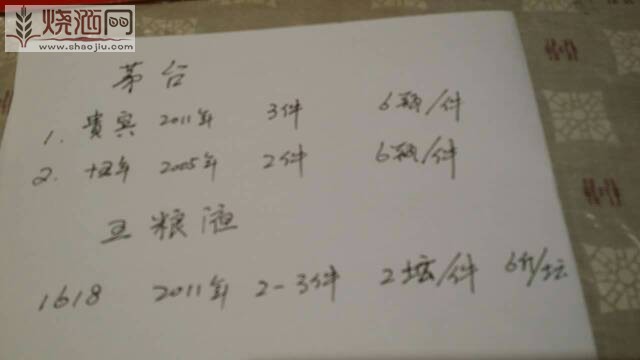 烧酒网
www.shaojiu.com
茅台
1. 貴宾 2011年 3件 6瓶/件
2. 十五年 2005年 2件 6瓶/件
五粮液
1618 2011年 2-3件 2坛/件 6斤/坛